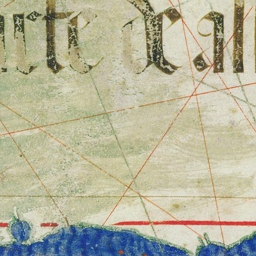 arte de all